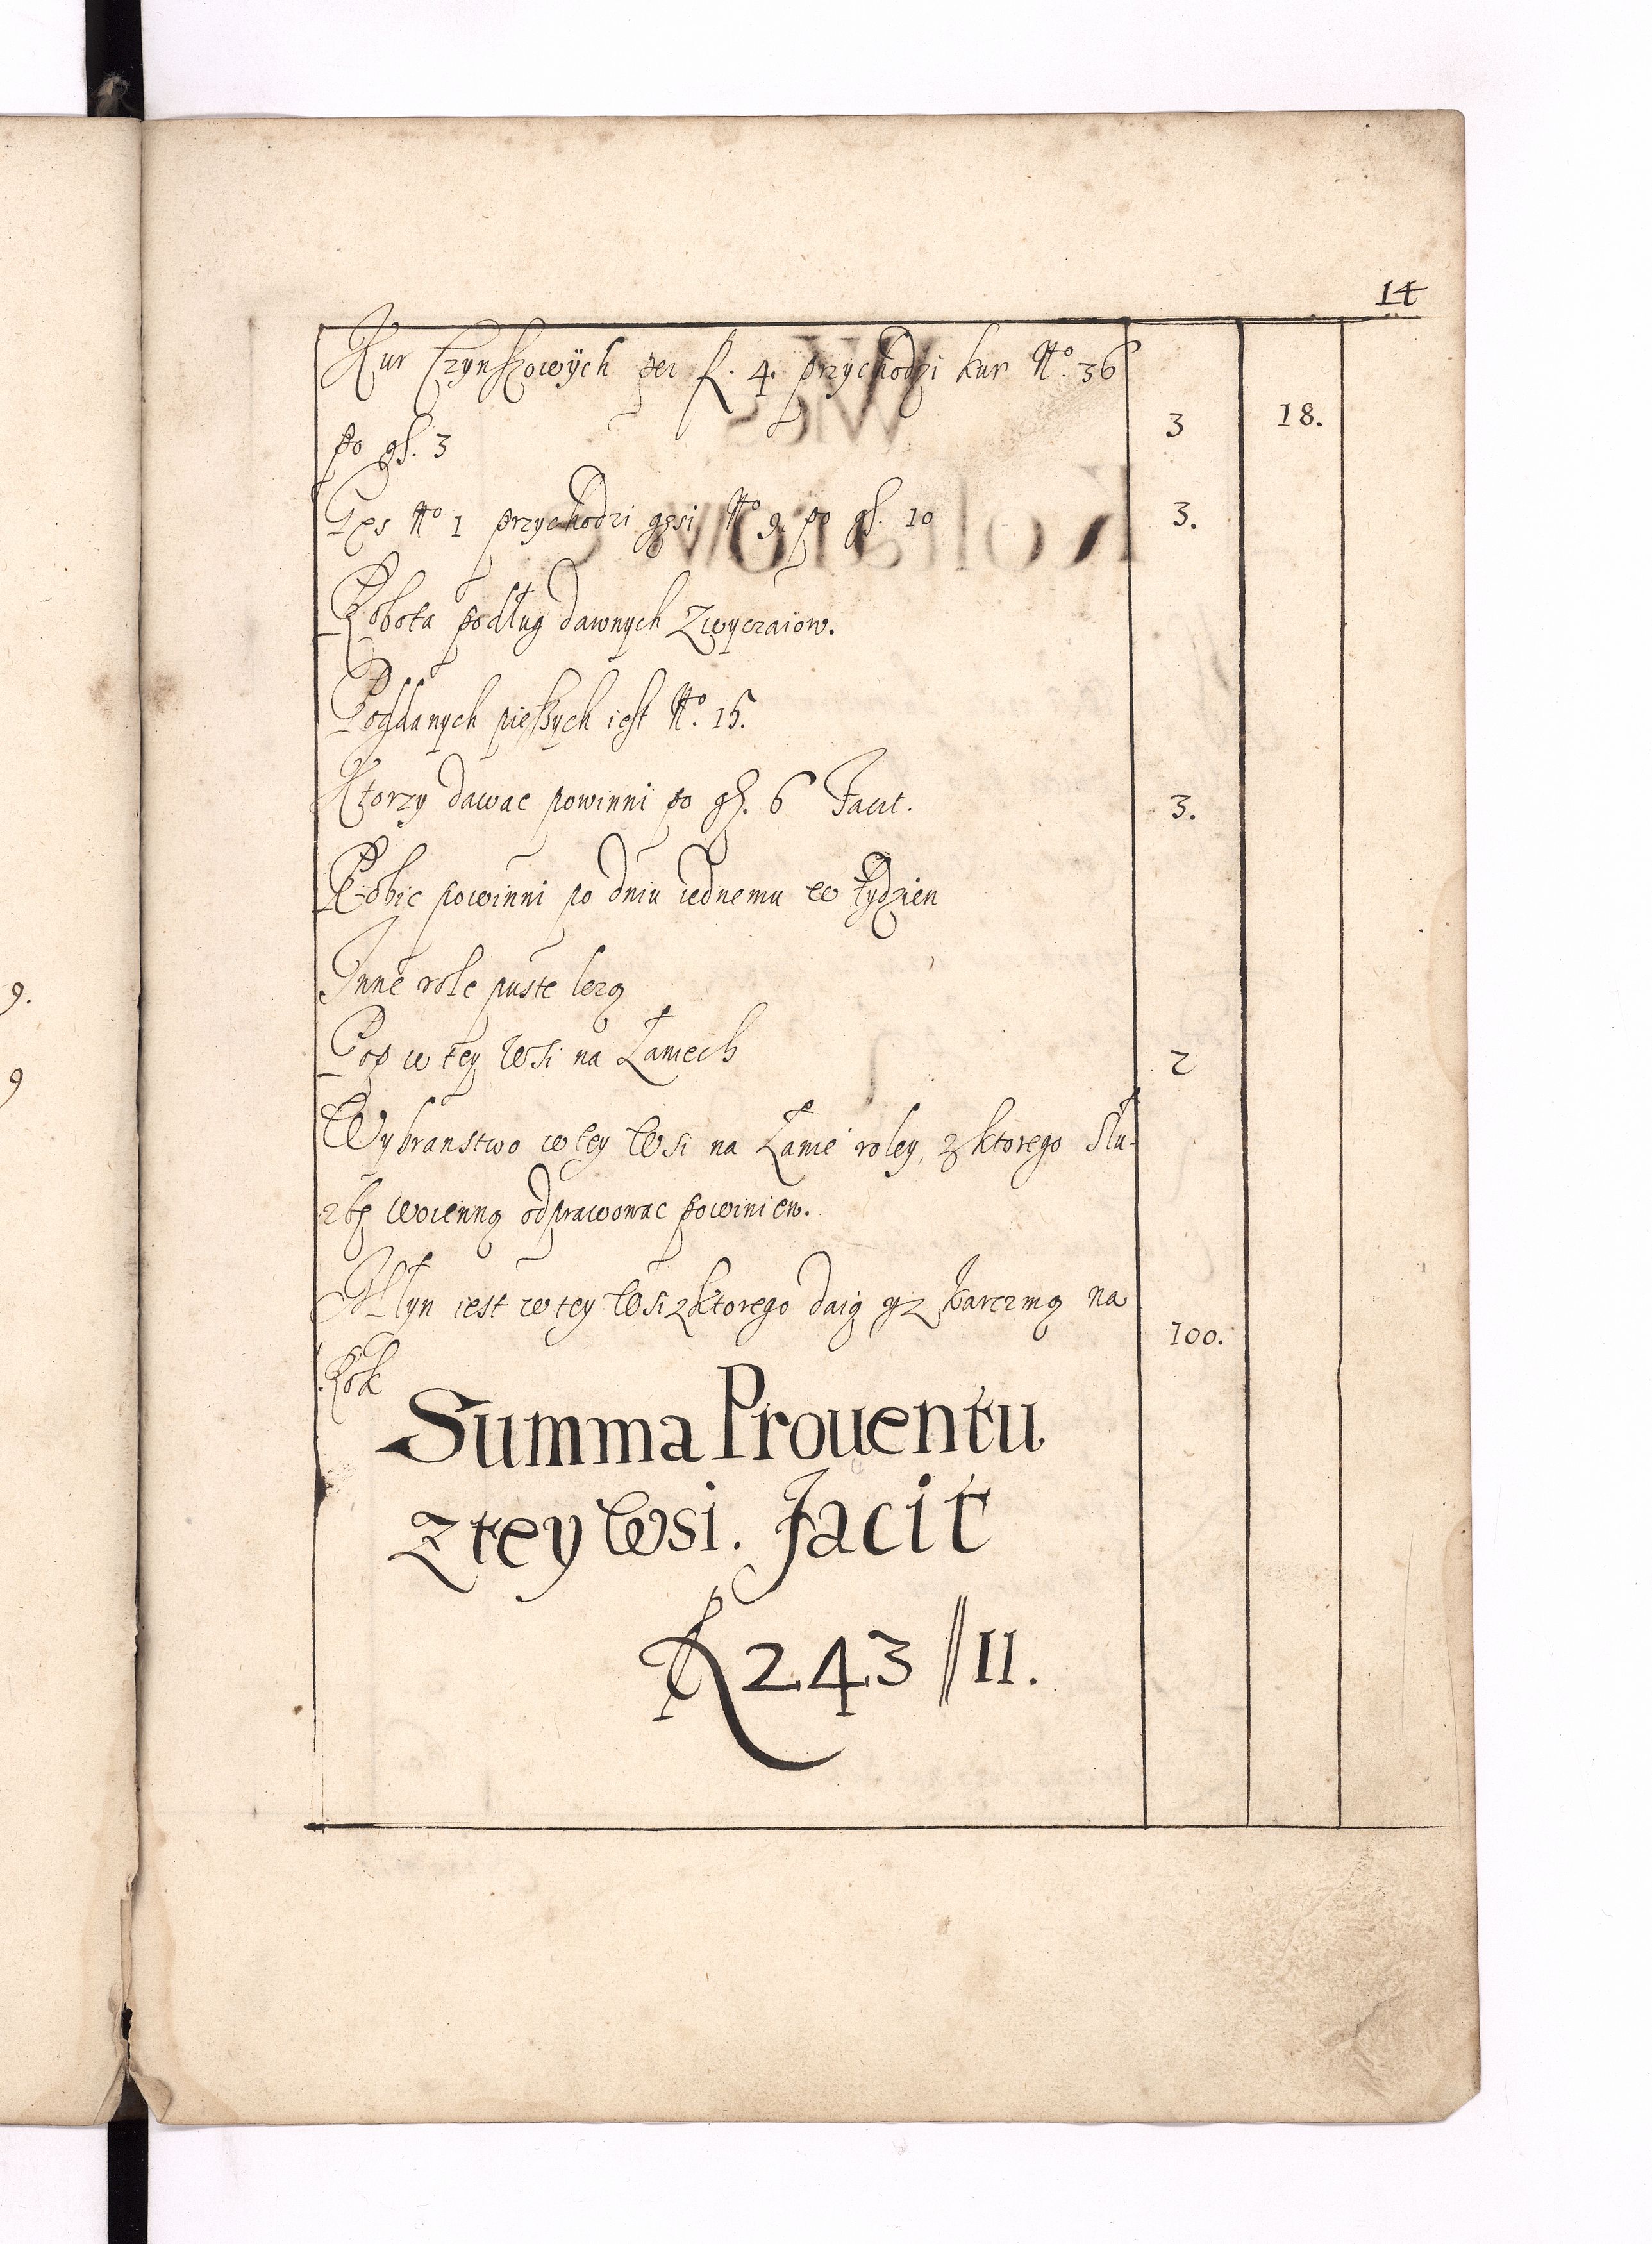 14
Kur Czynszowÿch per f. 4. przychodzi kur No. 36
po gs. 3 3 18.
Gęs No 1 przychodzi gęsi No 9. po gs. 10 3.
Robota podług dawnych Zwyczaiow.
Poddanych pieszych iest No. 15.
Ktorzy dawac powinni po gs. 6 Facit. 3.
Robic powinni po dniu iednemu w tydzien
Inne role puste lezą
Pop w tey Wsi na Łanech 2
Wybranstwo w tey Wsi na Łanie roley, z ktorego Słu-
zbę woienną odprawowac powinien.
Młyn iest w tey Wsi z ktorego daią y z karczmą na
Rok 100.
Summa Prouentu
z tey Wsi. Facit
f 243 // 11.
9.
9